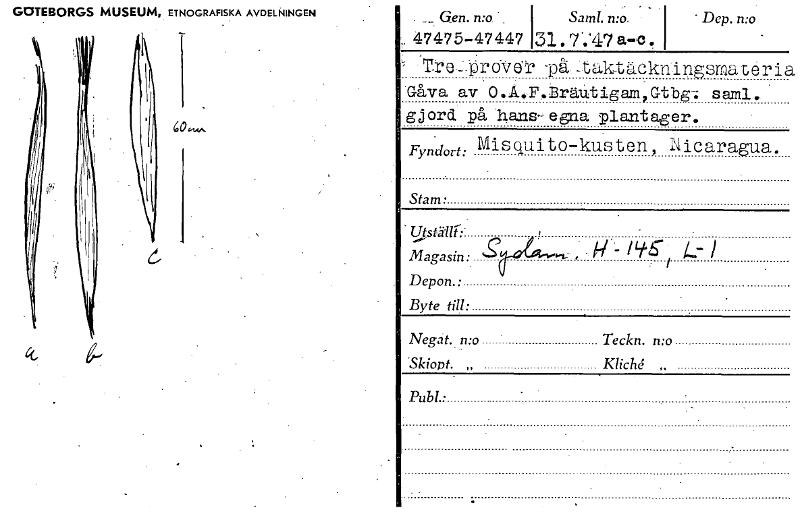 GÖTEBORGS MUSEUM, ETNOGRAFISKA AVDELNINGEN
60 cm
a
b
c
Gen. n:o Saml. n:o Dep. n:o
47475-47447 31.7.47a-c.
Tre prover på taktäckningsmateria
Gåva av O.A.F.Bräutigam,Gtbg. saml.
gjord på hans egna plantager.
Fyndort: Misquito-kusten, Nicaragua.
Stam:
Utställt:
Magasin: Sydam. H-145, L-1
Depon.:
Byte till:
Negat. n:o Teckn. n:o
Skiopt. „ Kliché „
Publ.: